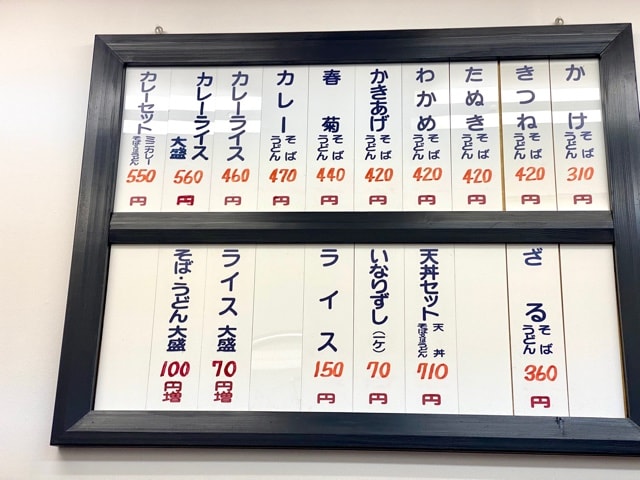 かけ そば うどん 310 円
きつね そば うどん 420 円
たぬき そば うどん 420 円
わかめ そば うどん 420 円
かきあげ そば うどん 420 円
春菊 そば うどん 440 円
カレー そば うどん 470 円
カレーライス 460 円
カレーライス 大盛 560 円
カレーセット ミニカレー 550 円
ざる そば うどん 360 円
天丼セット 天丼 710 円
いなりずし(一ケ) 70 円
ライス 150 円
ライス 大盛 70 円増
そば・うどん 大盛 100 円増